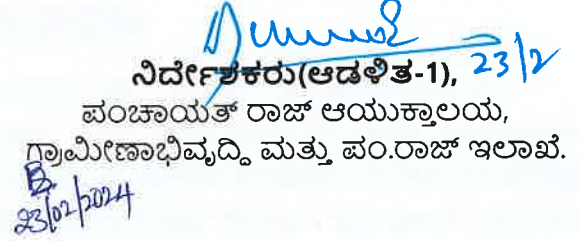 ನಿರ್ದೇಶಕರು(ಆಡಳಿತ-1), 23/2
ಪಂಚಾಯತ್ ರಾಜ್ ಆಯುಕ್ತಾಲಯ,
ಗ್ರಾಮೀಣಾಭಿವೃದ್ದಿ ಮತ್ತು ಪಂ.ರಾಜ್ ಇಲಾಖೆ.
23/02/2024